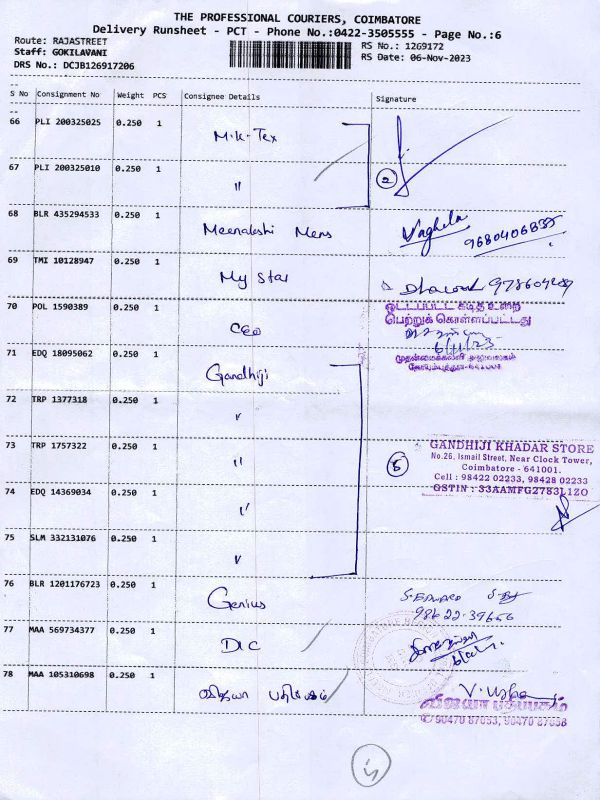 THE PROFESSIONAL COURIERS, COIMBATORE
Delivery Runsheet - PCT - Phone No.:0422-3505555 - Page No.:6
Route: RAJASTREET
Staff: GOKILAVANI
DRS No.: DCJB126917206
RS No.: 1269172
RS Date: 06-Nov-2023
S No Consignment No Weight PCS Consignee Details Signature
66 PLI 200325025 0.250 1 M.K-Tex
67 PLI 200325010 0.250 1 "
2
68 BLR 435294533 0.250 1 Meenakshi Mens Vaghela
9680406835
69 TMI 10128947 0.250 1 My Star
70 POL 1590389 0.250 1 CEO
ஒட்டப்பட்ட கடித உறை
பெற்றுக் கொள்ளப்பட்டது
6/11/23
முதன்மைக்கல்வி அலுவலகம்
கோயம்புத்தூர்-641001
71 EDQ 18095062 0.250 1 Gandhiji
72 TRP 1377318 0.250 1 "
73 TRP 1757322 0.250 1 "
5
GANDHIJI KHADAR STORE
No.26, Ismail Street, Near Clock Tower,
Coimbatore - 641001.
Cell : 98422 02233, 98428 02233
GSTIN : 33AAMFG2783L1ZO
74 EDQ 14369034 0.250 1 "
75 SLM 332131076 0.250 1 "
76 BLR 1201176723 0.250 1 Genius S. EDWARD
98422-39656
77 MAA 569734377 0.250 1 DLC
78 MAA 105310698 0.250 1 விஜயா பதிப்பகம் V. Usha
விஜயா பதிப்பகம்
✆ 90470 87053, 90470 87058